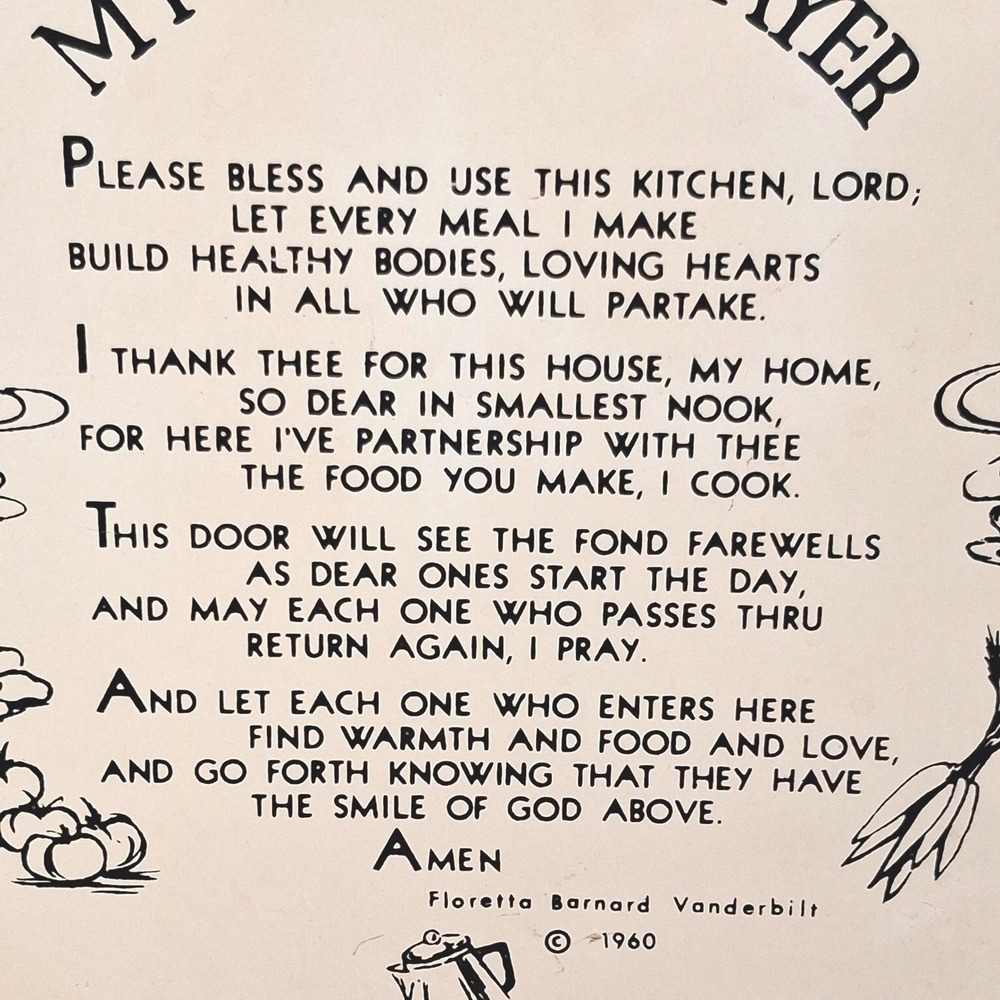 PLEASE BLESS AND USE THIS KITCHEN, LORD;
LET EVERY MEAL I MAKE
BUILD HEALTHY BODIES, LOVING HEARTS
IN ALL WHO WILL PARTAKE.
I THANK THEE FOR THIS HOUSE, MY HOME,
SO DEAR IN SMALLEST NOOK,
FOR HERE I'VE PARTNERSHIP WITH THEE
THE FOOD YOU MAKE, I COOK.
THIS DOOR WILL SEE THE FOND FAREWELLS
AS DEAR ONES START THE DAY,
AND MAY EACH ONE WHO PASSES THRU
RETURN AGAIN, I PRAY.
AND LET EACH ONE WHO ENTERS HERE
FIND WARMTH AND FOOD AND LOVE,
AND GO FORTH KNOWING THAT THEY HAVE
THE SMILE OF GOD ABOVE.
AMEN
Floretta Barnard Vanderbilt
© 1960